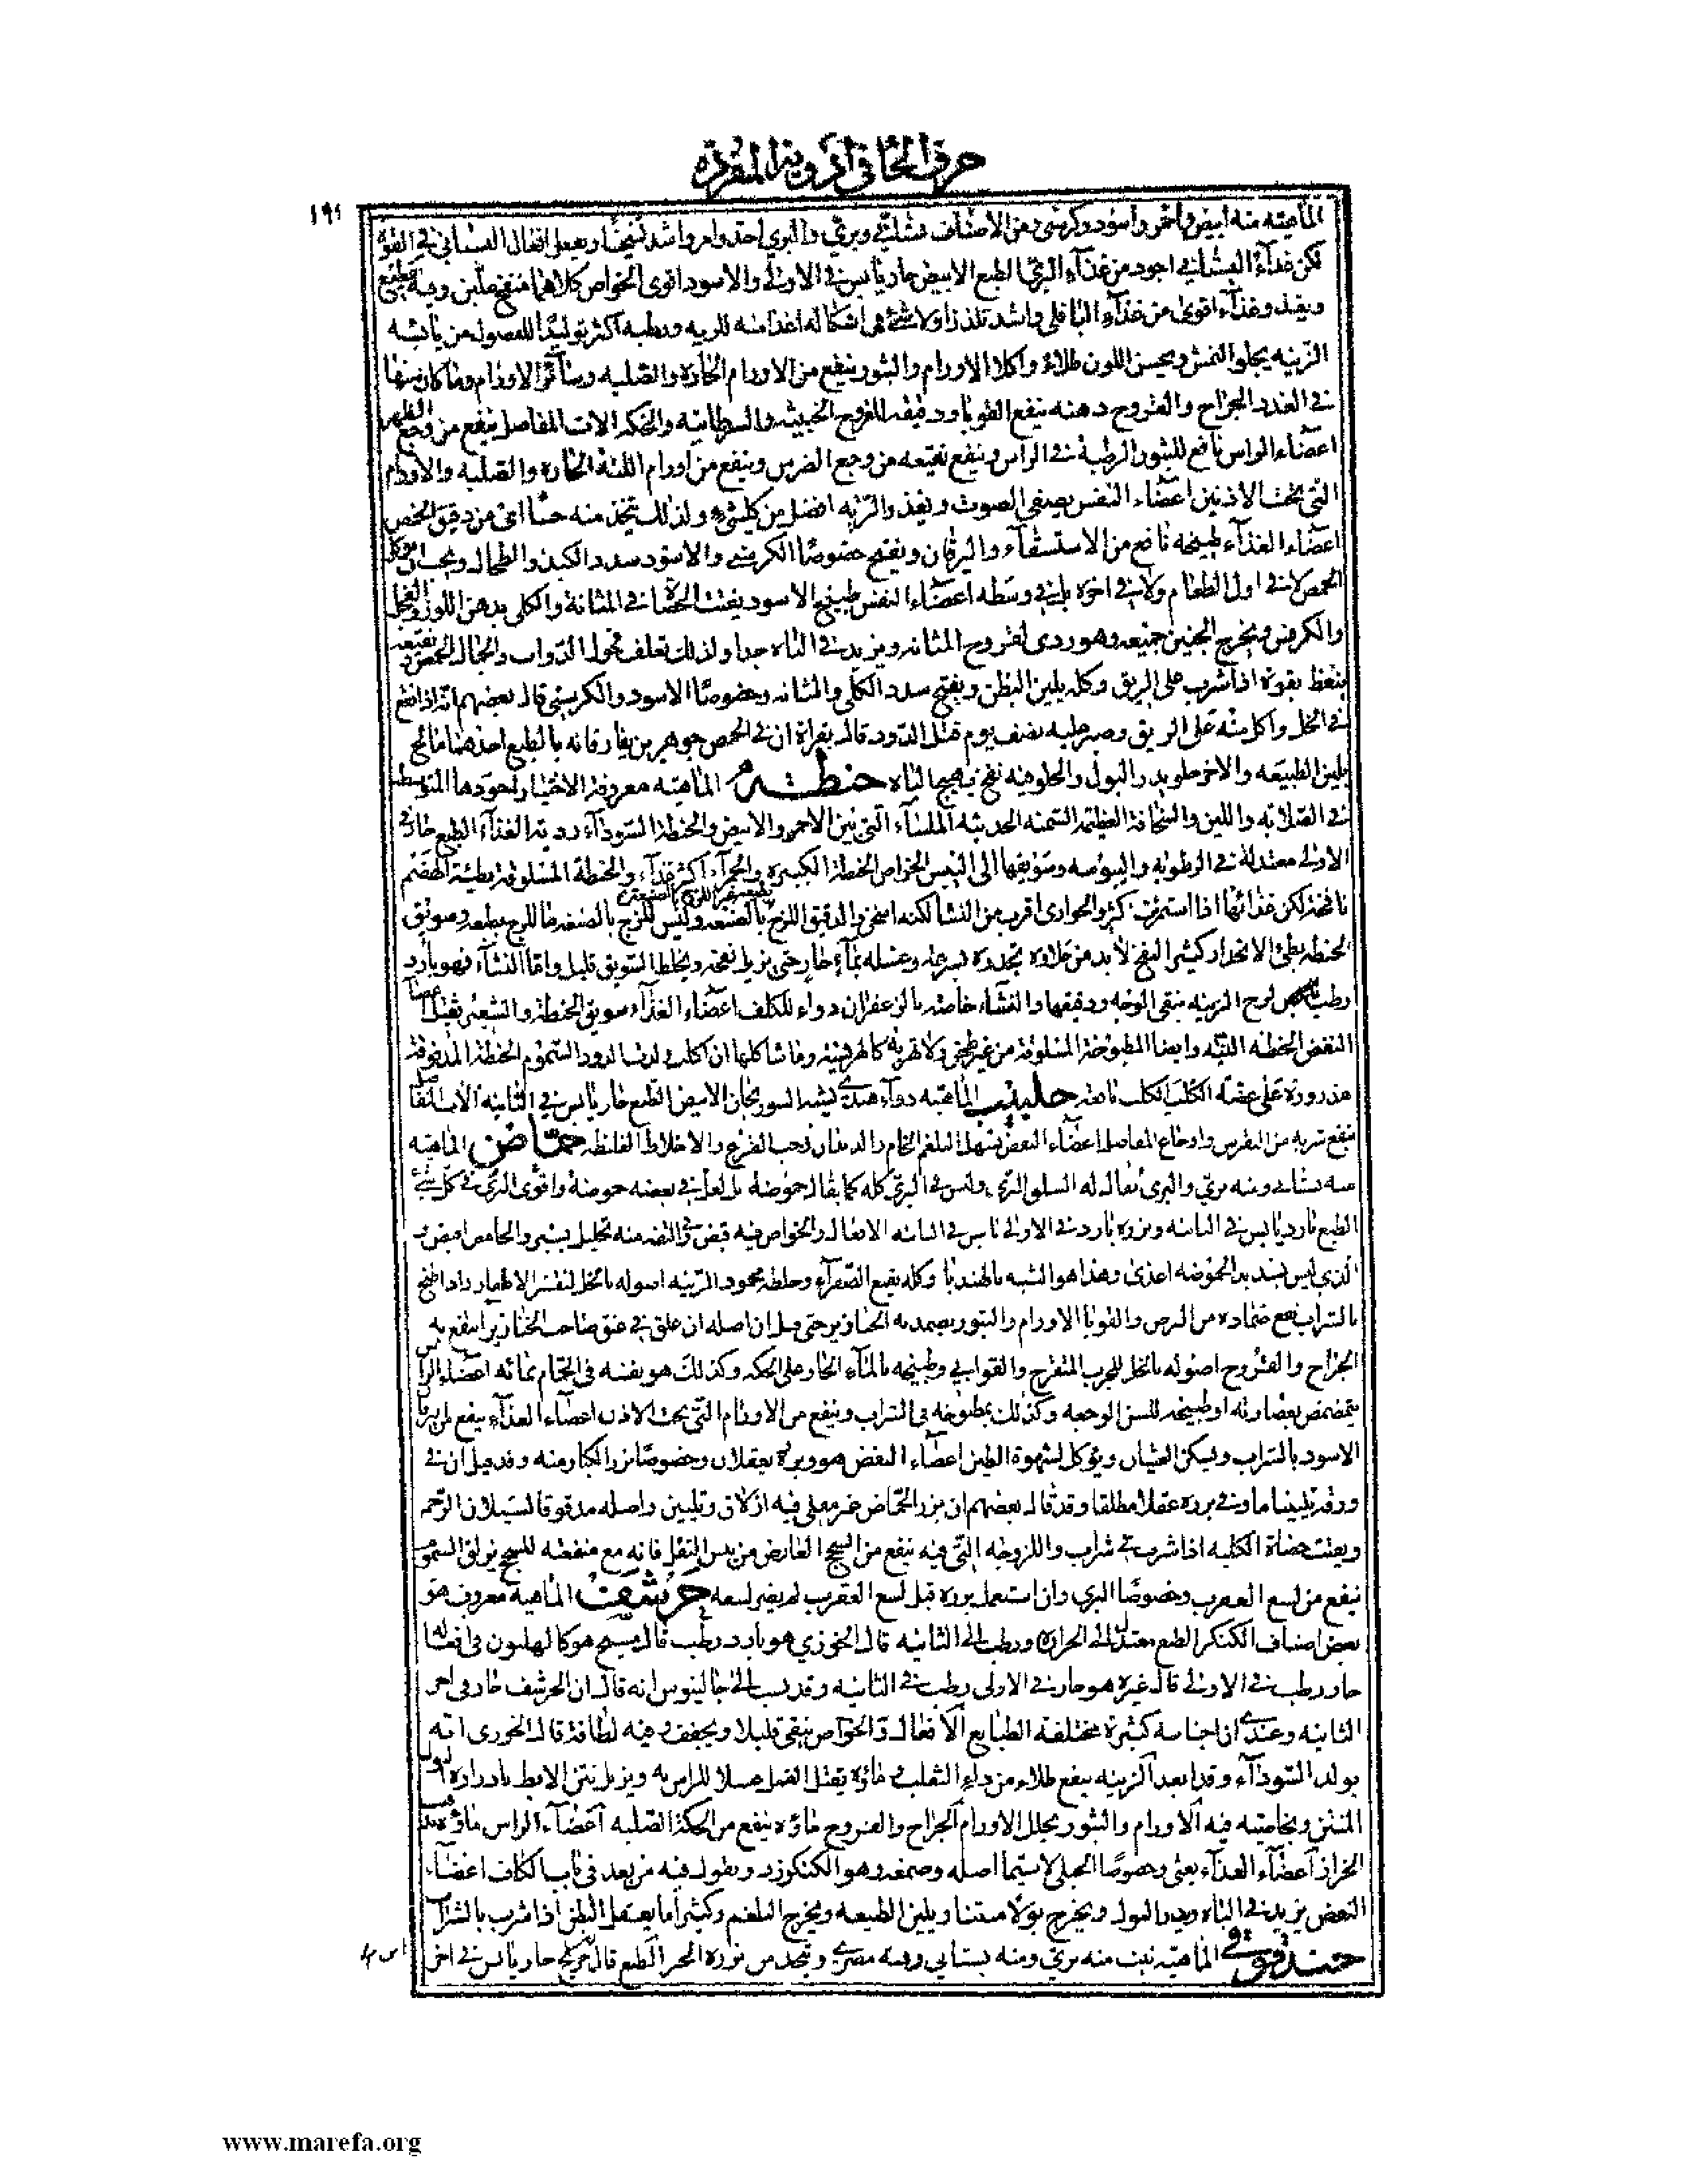 حرف الحا فى ادوية المفردة
١٩١
الماهية منه ابيض واحمر واسود وكرسنى ومن الاصناف بستانى وبرى والبرى احد وامر واشد تسخينا ويفعل افعال البستانى فى القوة
لكن غذاء البستانى اجود من غذاء البرى الطبع الابيض حار يابس فى الاولى والاسود اقوى الخواص كلاهما منفخ ملين وفيه تقطيع
ويغذو غذاء اقوى من غذاء الباقلى واشد تلذذا ولا شئ فى اشكاله اغذا منه للريه ورطبه اكثر توليدا للفضول من يابسه
الزينه يجلو النمش ويحسن اللون طلاء واكلا الاورام والبثور ينفع من الاورام الحاره والصلبه وسائر الاورام وما كان منها
فى الغدد الجراح والقروح دهنه ينفع القوبا ودقيقه للقروح الخبيثه والسرطانيه والحكه الات المفاصل ينفع من وجع الظهر
اعضاء الراس نافع للبثور الرطبة فى الراس وينفع نقيعه من وجع الضرس وينفع من اورام اللثة الحاره والصلبه والاورام
التى تحت الاذنين اعضاء النفس يصفى الصوت ويغذو الريه افضل من كل شئ ولذلك يتخذ منه حسا اى من دقيق الحمص
اعضاء الغذاء طبيخه نافع من الاستسقاء واليرقان ويفتح خصوصا الكرسنى والاسود سدد الكبد والطحال ويجب ان يوكل
الحمص لا فى اول الطعام ولا فى اخره بل فى وسطه اعضاء النفض طبيخ الاسود يفتت الحصاة فى المثانة والكلى بدهن اللوز والفجل
والكرفس ويخرج الجنين جميعه وهو ردى لقروح المثانه ويزيد فى الباه جدا ولذلك تعلف فحول الدواب والجمال الحمص ونقيعه
ينعظ بقوة اذا شرب على الريق وكله يلين البطن ويفتح سدد الكلى والمثانه وخصوصا الاسود والكرسنى قال بعضهم انه اذا انقع
فى الخل واكل منه على الريق وصبر عليه نصف يوم قتل الدود قال بقراط ان فى الحمص جوهرين يفارقانه بالطبخ احدهما مالح
يلين الطبيعه والاخر حلو يدر البول والحلو فيه نفخ يهيج الباه حنطه الماهيه معروفة الاختيار اجودها المتوسطه
فى الصلابه واللين والسخافة العظيمه السمينه الحديثه الملساء التى بين الاحمر والابيض والحنطة السوداء ردية الغذاء الطبع حاره فى
الاولى معتدلة فى الرطوبه واليبوسه وسويقها الى اليبس الخواص الحنطة الكبيره والحمراء اكثر غذاء والحنطة المسلوقة بطيئة الهضم
نافخة لكن غذائها اذا استمرئت كثير والحوارى اقرب من النشا لكنه اسخن والدقيق اللزج بطبعه غير اللزج بالصنعة وليس للزج بالصنعه ما للزج بطبعه وسويق
الحنطه بطئ الانحدار كثير النفخ لا بد من حلاوه تحدره بسرعه وغسله بماء حار حتى يزيل نفخه ويخلط السويق قليل واما النشاء فهو بارد
رطب لزج الزينه ينقى الوجه ودقيقها والنشاء خاصة بالزعفران دواء للكلف اعضاء الغذاء سويق الحنطة والشعير ثقيل اعضاء
النفض الحنطه النيه وايضا المطبوخة المسلوقة من غير طحن ولا تهريه كالهريسه وما شاكلها ان اكلت ولدت الدود السموم الحنطة المدقوقة
مذرورة على عضة الكلب الكلب نافعه حلبيب الماهيه دواء هندى يشبه السورنجان الابيض الطبع حار يابس فى الثانيه الات المفاصل
ينفع شربه من النقرس واوجاع المفاصل اعضاء النفض يسهل البلغم الخام والديدان وحب القرع والاخلاط الغليظه حماض الماهيه
منه بستانى ومنه برى والبرى يقال له السلق البرى وليس فى البرى كله كما يقال حموضة بل لعل فى بعضه حموضة واقوى البرى فى كل شئ
الطبع بارد يابس فى الثانيه وبزره بارد فى الاولى يابس فى الثانيه الافعال والخواص فيه قبض والتفه منه تحليل يسير والحامض اقبض و
الذى ليس بشديد الحموضه اغذى وهذا هو الشبيه بالهندبا وكله يقمع الصفراء وخلطه محمود الزينه اصوله بالخل لتقشر الاظفار واذا طبخ
بالشراب نفع ضماده من البرص والقوبا الاورام والبثور يضمد به الخنازير حتى قيل ان اصله ان علق فى عنق صاحب الخنازير انتفع به
الجراح والقروح اصوله بالخل للجرب المتقرح والقوابى وطبيخه بالماء الحار على الحكه وكذلك هو نفسه فى الحمام بمائه اعضاء الراس
يتمضمض بعصارته او طبيخه للسن الوجعه وكذلك بمطبوخه فى الشراب وينفع من الاورام التى تحت الاذن اعضاء الغذاء ينفع اليرقان
الاسود بالشراب ويسكن الغثيان ويؤكل لشهوة الطين اعضاء النفض هو وبزره يعقلان وخصوصا بزر الكبار منه وقد قيل ان فى
ورقه تليينا ما وفى بزره عقلا مطلقا وقد قال بعضهم ان بزر الحماض غير مقلى فيه ازلاق وتليين واصله مدقوقا لسيلان الرحم
ويفتت حصاة الكليه اذا شرب فى شراب واللزوجه التى فيه ينفع من السحج العارض من يبس الثفل فانه مع منفعته للسحج يزلق السموم
ينفع من لسع العقرب وخصوصا البرى وان استعمل بزره قبل لسع العقرب لم يضر لسعه حرشف الماهية معروف هو
بعض اصناف الكنكر الطبع معتدل الى الحرارة ورطب الى الثانيه قال الخوزي هو بارد رطب قال مسيح هو كالهليون فى افعاله
حار رطب فى الاولى قال غيره هو حار فى الاولى رطب فى الثانيه وقد نسب الى جالينوس انه قال ان الحرشف حار فى اخر
الثانيه وعندى ان اجناسه كثيرة مختلفه الطبايع الافعال والخواص ينقى قليلا ويجفف وفيه لطافة قال الخوزى انه
يولد السوداء وقد ابعد الزينه ينفع طلاء من داء الثعلب وماؤه يقتل القمل غسلا للراس به ويزيل نتن الابط بادراره البول
المنتن وبخاصيته فيه الاورام والبثور يحلل الاورام الجراح والقروح ماؤه ينفع من الحكة الصلبه اعضاء الراس ماؤه يذهب
الحزاز اعضاء الغذاء يغثى وخصوصا الجبلى لاسيما اصله وصمغه وهو الكنكرزد ونطول فيه من بعد فى باب الكاف اعضاء
النفض يزيد فى الباه ويدر البول ويخرج بولا منتنا ويلين الطبيعه ويخرج البلغم وكثيرا ما يعقل البطن اذا شرب بالشراب
حندقوقى الماهيه نبت منه برى ومنه بستانى ومنه مصرى ويتخذ من بزره الخبز الطبع قال جريج حار يابس فى اخر
www.marefa.org